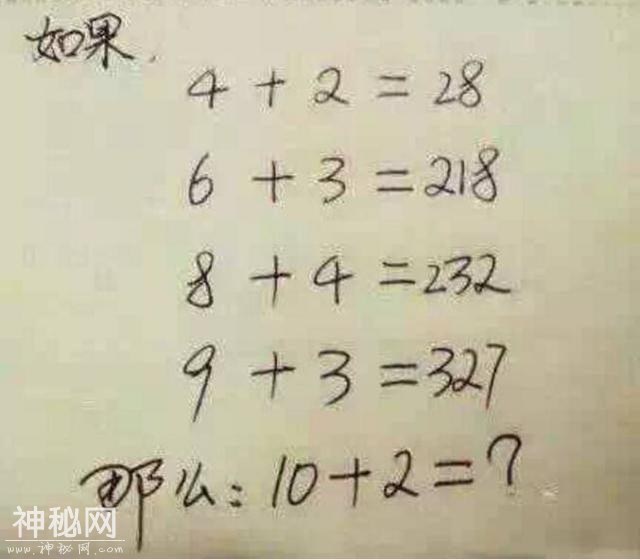 如果.
4 + 2 = 28
6 + 3 = 218
8 + 4 = 232
9 + 3 = 327
那么: 10 + 2 = ?
神秘网
www.神秘网.com